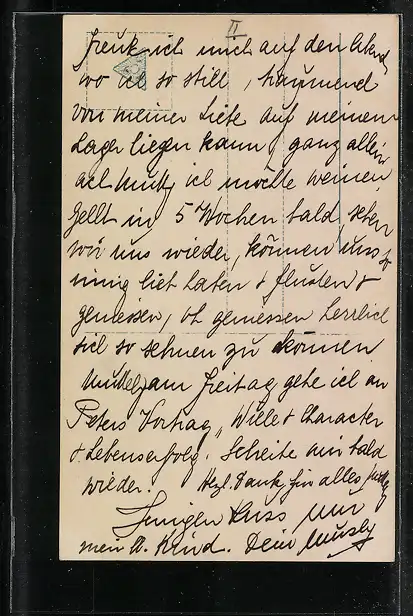 II
freuk ich mich auf den Abend,
wo ich so still, träumend
von meiner Liebe auf meinem
Lager liegen kann, ganz allein,
ach Mutti, ich möchte weinen
Gellt in 5 Wochen bald sehen
wir uns wieder, können uns so
innig lieb haben & flüstern &
geniessen, oh geniessen herrlich
sich so sehnen zu können
am Freitag gehe ich an
Peters Vortrag „Wille & Character
& Lebenserfolg. Schreibe mir bald
wieder. Hzl. Dank für alles
Innigen Kuss
mein II. Kind. Dein